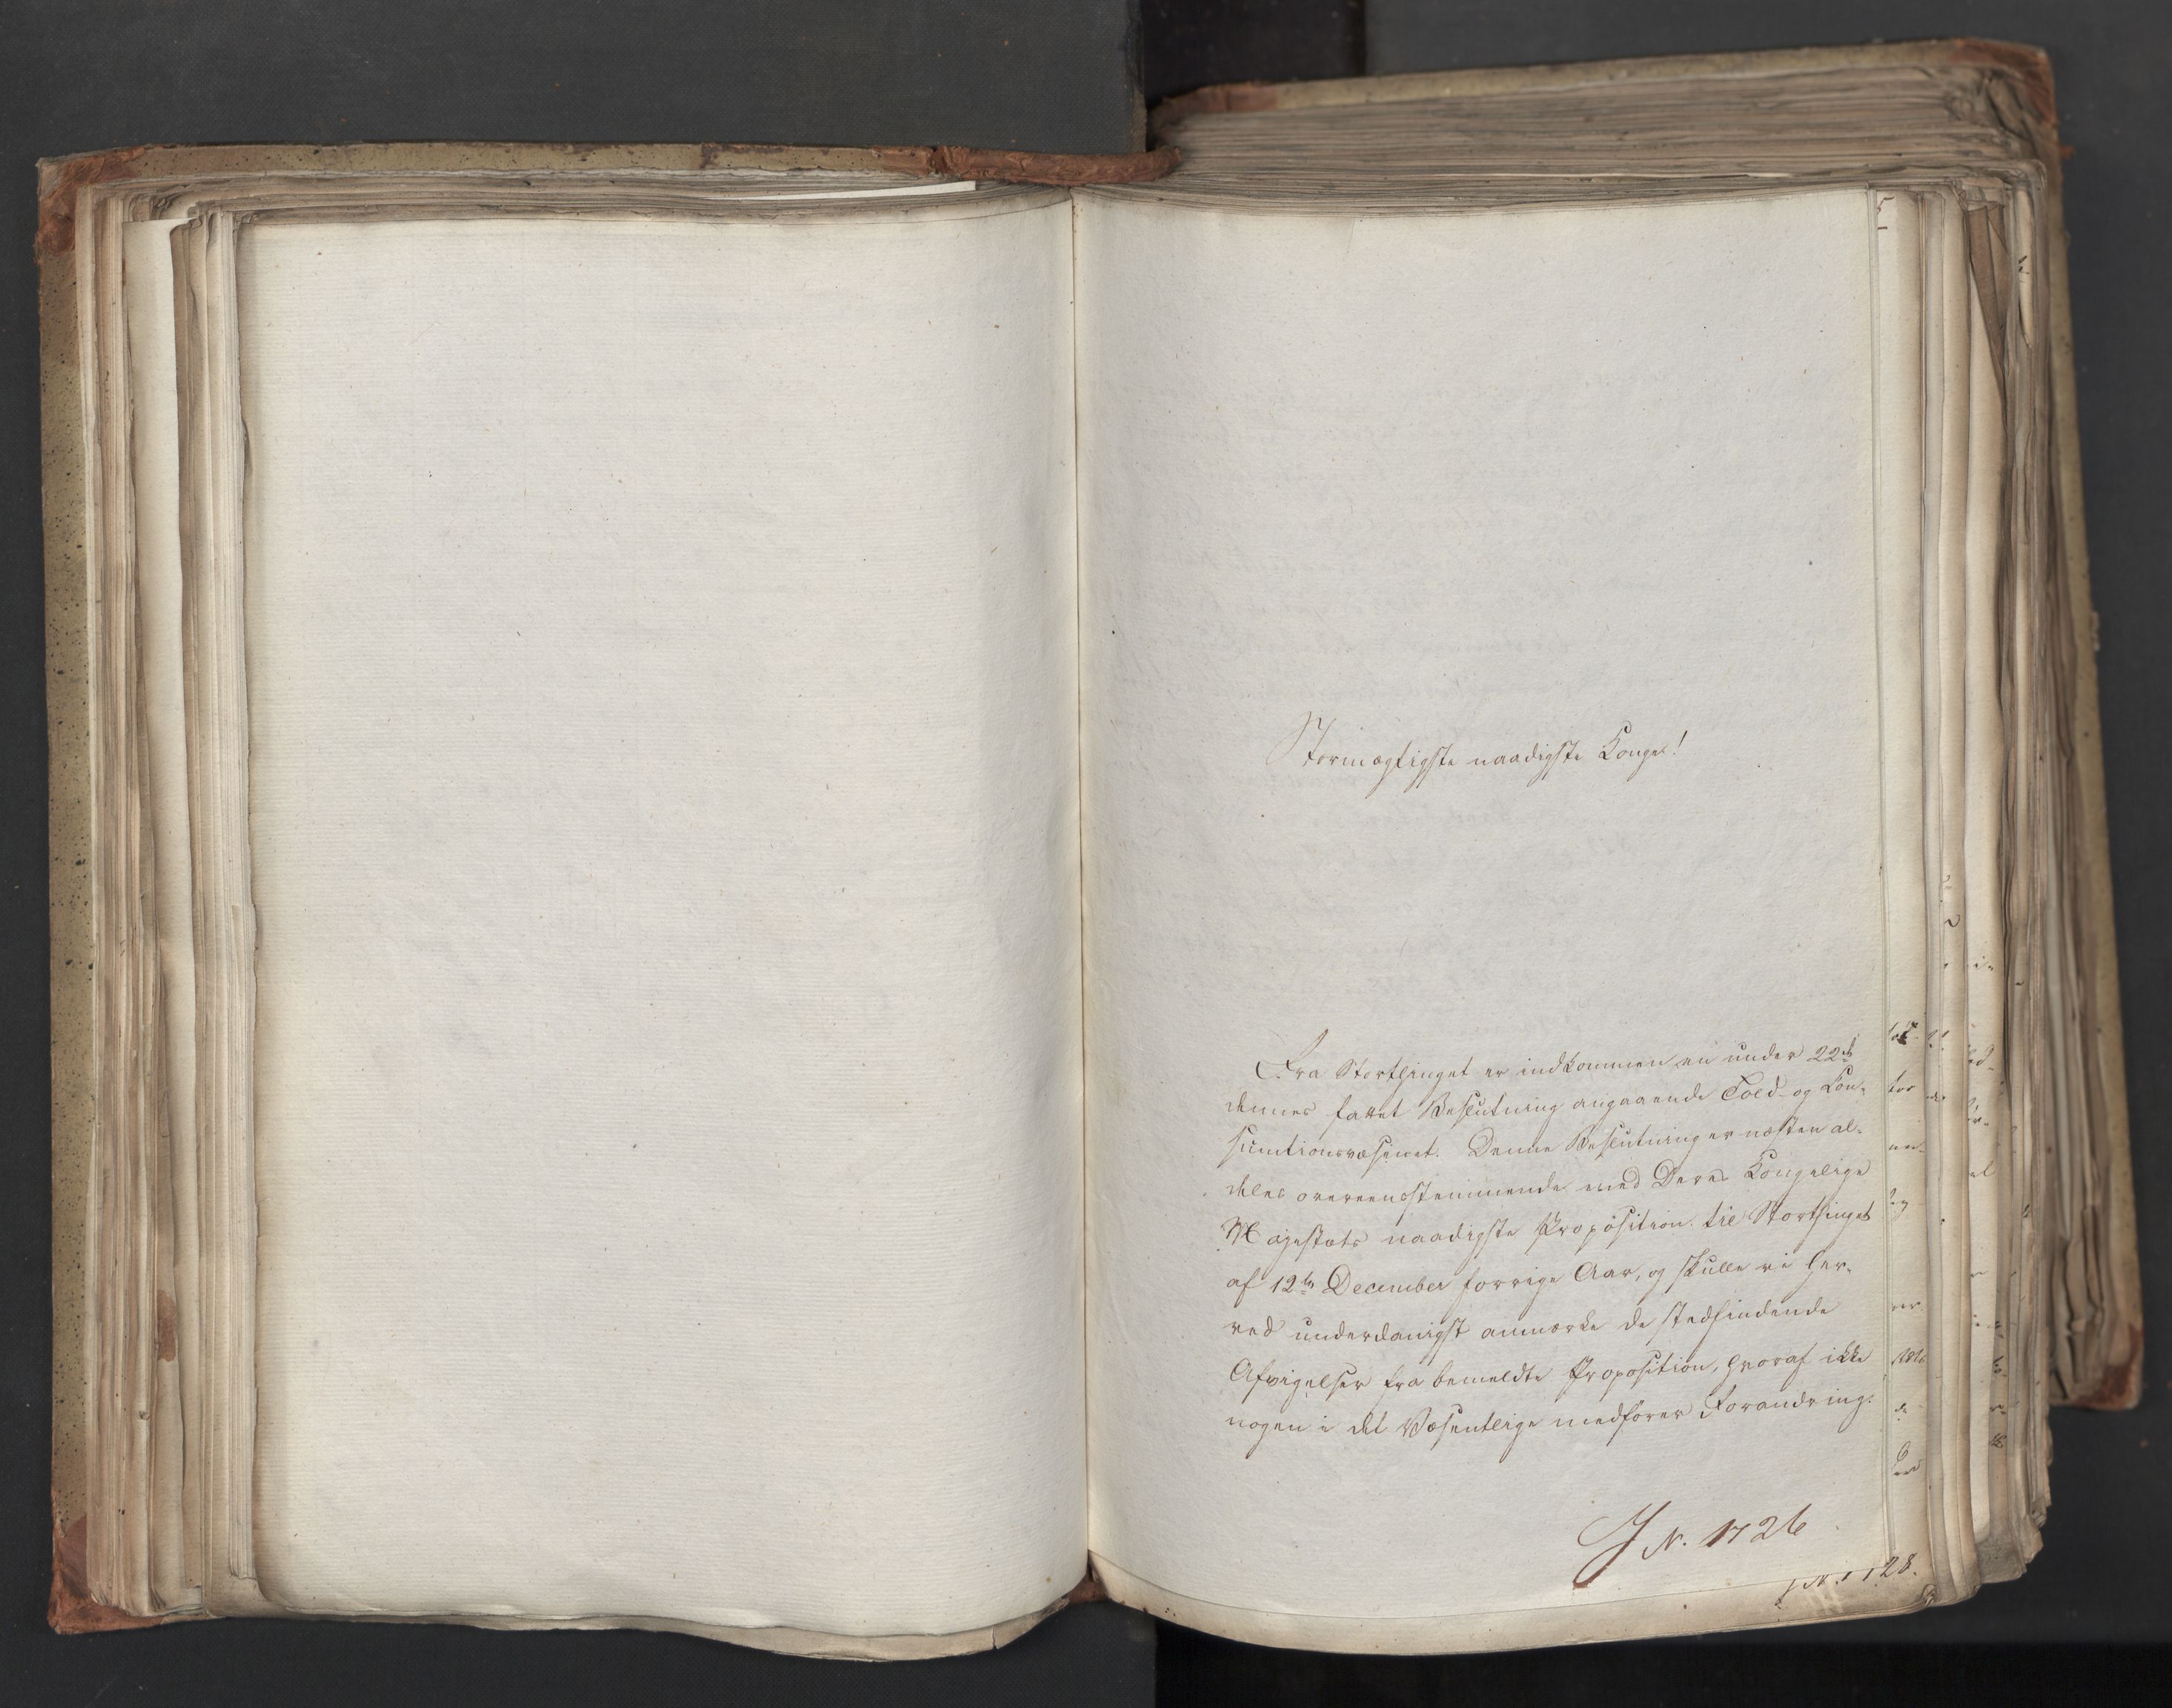 Stormægtigste naadigste Konge!
Fra Storthinget er indkommen en under 22de
dennes fattet Beslutning angaaende Told- og Con-
sumtionsvæsenet. Denne Beslutning er næsten al-
deles overeensstemmende med Deres Kongelige
Majestæts naadigste Proposition til Storthinget
af 12te December forrige Aar, og skulle vi her-
ved underdanigst anmærke de stedfindende
Afvigelser fra bemeldte Proposition, hvoraf ikke
nogen i det Væsentlige medfører Forandring.
J N. 1726